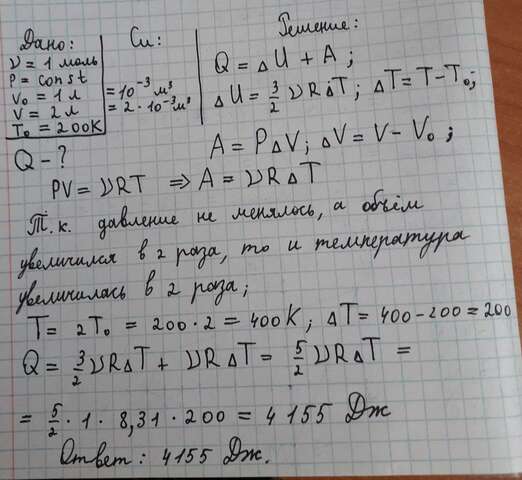 Дано:
ν = 1 моль
P = const
V₀ = 1 л
V = 2 л
T₀ = 200К
Q - ?
Си:
= 10⁻³ м³
= 2 · 10⁻³ м³
Решение:
Q = ΔU + A ;
ΔU = 3/2 νRΔT ; ΔT = T - T₀;
A = PΔV; ΔV = V - V₀ ;
PV = νRT ⇒ A = νRΔT
Т.к. давление не менялось, а объём
увеличился в 2 раза, то и температура
увеличилась в 2 раза;
T = 2T₀ = 200 · 2 = 400К ; ΔT = 400 - 200 = 200
Q = 3/2 νRΔT + νRΔT = 5/2 νRΔT =
= 5/2 · 1 · 8,31 · 200 = 4155 Дж
Ответ: 4155 Дж.